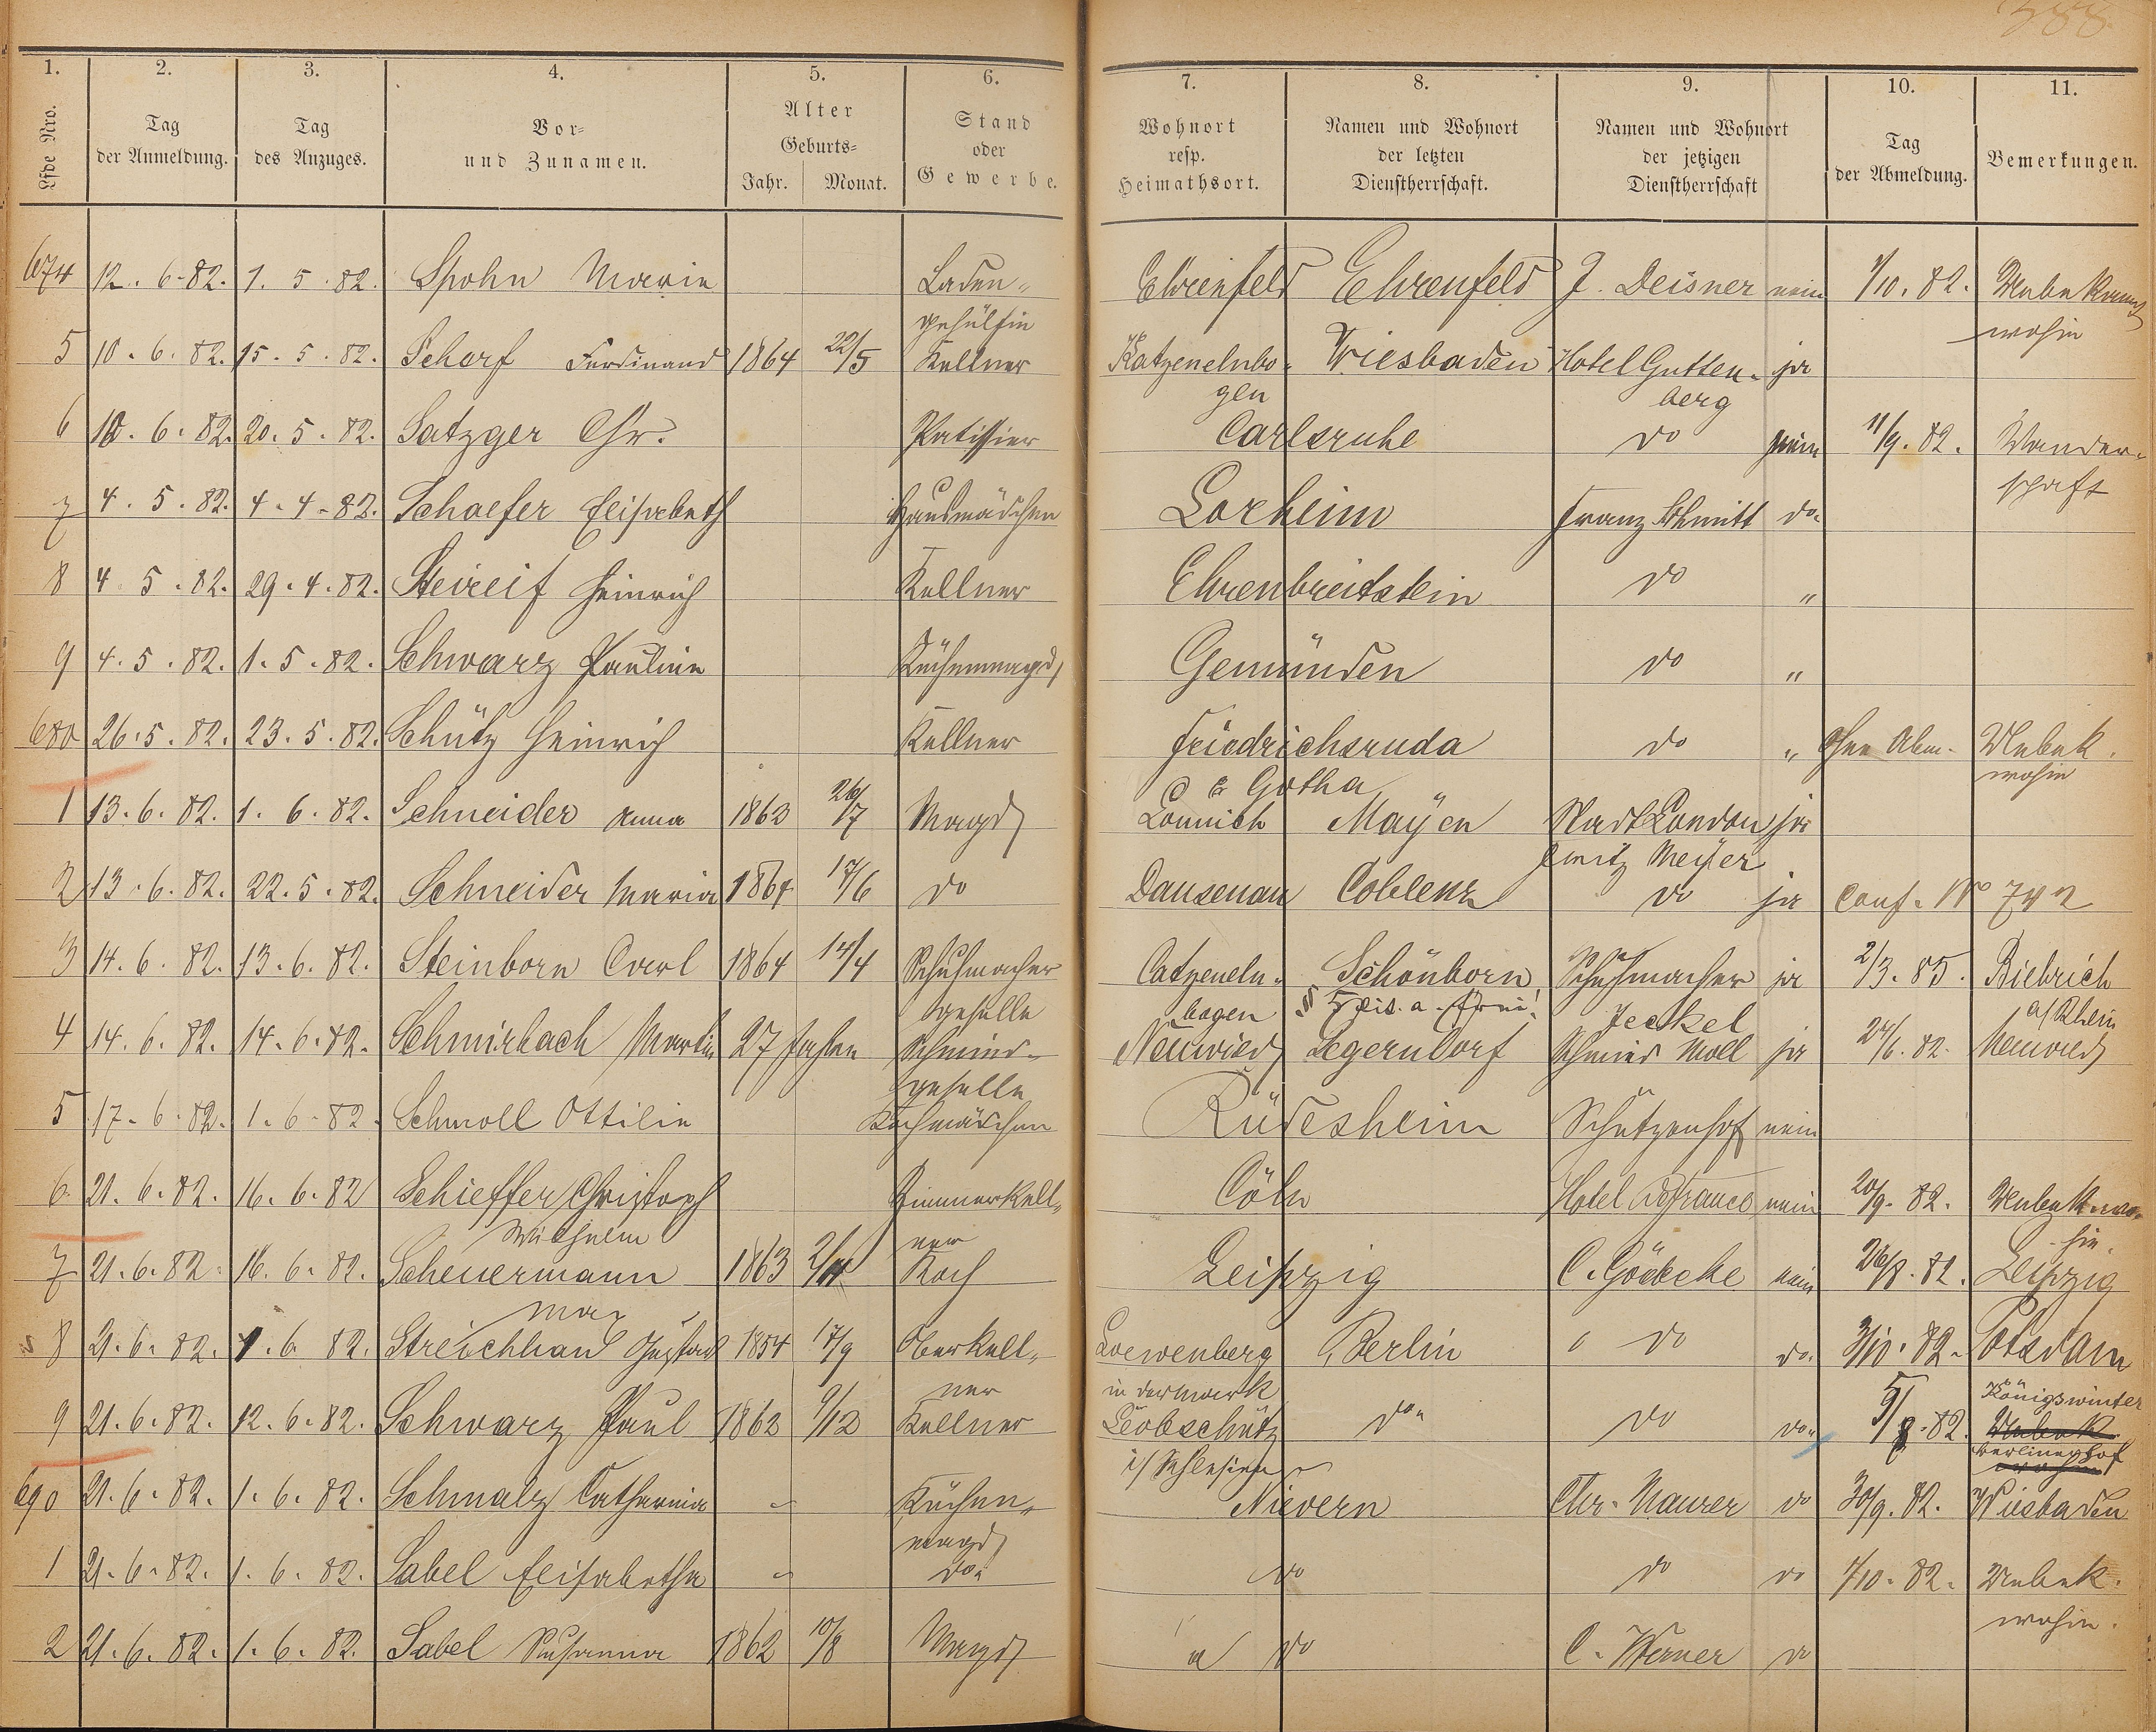 388
1. 2. 3. 4. 5. 6. 7. 8. 9. 10. 11.
Lfde Nro. Tag der Anmeldung. Tag des Anzuges. Vor- und Zunamen. Alter Geburts- Jahr. Monat. Stand oder Gewerbe. Wohnort resp. Heimathsort. Namen und Wohnort der letzten Dienstherrschaft. Namen und Wohnort der jetzigen Dienstherrschaft Tag der Abmeldung. Bemerkungen.
674 12. 6. 82. 1. 5. 82. Spohn Marie Laden- Ehrenfeld Ehrenfeld J. Deisner nein 1/10. 82. Unbekannt
gehülfin wohin
5 10. 6. 82. 15. 5. 82. Scharf Ferdinand 1864 22/5 Kellner Katzenelnbo- Wiesbaden Hotel Gutten- ja
gen berg
6 10. 6. 82. 20. 5. 82. Satzger Chr. Patissier Carlsruhe do nein 11/9. 82. Wander-
schaft
7 4. 5. 82. 4. 4. 82. Schaefer Elisabeth Hausmädchen Lorheim Franz Schmitt do
8 4. 5. 82. 29. 4. 82. Heinrich Kellner Ehrenbreitstein do "
9 4. 5. 82. 1. 5. 82. Schwarz Pauline Küchenmagd Gemünden do "
680 26. 5. 82. 23. 5. 82. Schütz Heinrich Kellner Friedrichsruda do " ohne Abm. Unbek.
Gotha wohin
1 13. 6. 82. 1. 6. 82. Schneider Anna 1863 26/7 Magd Lonnich Mayen Stadt London ja
Meyer
2 13. 6. 82. 22. 5. 82. Schneider Maria 1864 17/6 do Dausenau Coblenz do ja conf. No 742
3 14. 6. 82. 13. 6. 82. Steinborn Carl 1864 14/4 Schuhmacher Catzeneln- Schönborn Schuhmacher ja 2/3. 85. Biebrich
geselle bogen Jeckel a/Rhein
4 14. 6. 82. 14. 6. 82. Schmirbach Martin 27 Jahre Schmied- Neuwied Segerndorf Schmied Moll ja 24/6. 82. Neuwied
geselle
5 17. 6. 82. 1. 6. 82. Schmoll Ottilie Kochmädchen Rüdesheim Schützenhof nein
6 21. 6. 82. 16. 6. 82 Schieffer Christoph Zimmerkell- Cöln Hotel de France nein 20/9. 82. Unbek. wo-
Wilhelm ner hin.
7 21. 6. 82. 16. 6. 82. Scheuermann 1863 2/11 Koch Leipzig C. Göbecke nein 26/8. 82. Leipzig
Max
8 21. 6. 82. 1. 6. 82. Streichhan Gustav 1854 17/9 Oberkell- Loewenberg Berlin " do do. 3/10. 82. Potsdam
ner in der Mark Königswinter
9 21. 6. 82. 12. 6. 82. Schwarz Paul 1862 9/12 Kellner Leobschütz do. do do. 5/8. 82. Unbek.
i/ Schlesien Berliner Hof
wohin
690 21. 6. 82. 1. 6. 82. Schmalz Catharina " Küchen- Nievern Chr. Maurer do 30/9. 82. Wiesbaden
magd
1 21. 6. 82. 1. 6. 82. Sabel Elisabetha " do. do do do 1/10. 82. Unbek.
wohin.
2 21. 6. 82. 1. 6. 82. Sabel Susanna 1862 10/8 Magd " do C. Werner do